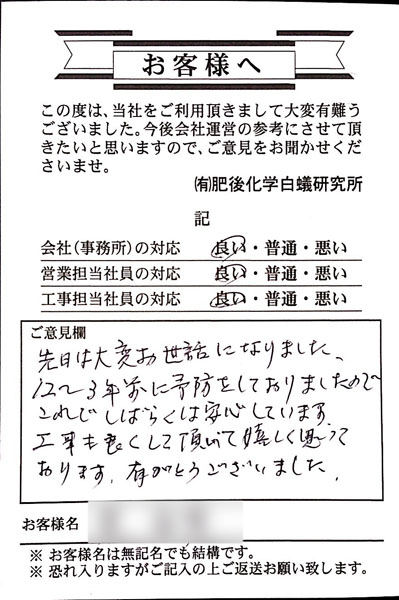 お客様へ
この度は、当社をご利用頂きまして大変有難う
ございました。今後会社運営の参考にさせて頂
きたいと思いますので、ご意見をお聞かせくだ
さいませ。
㈲肥後化学白蟻研究所
記
会社(事務所)の対応 良い・普通・悪い
営業担当社員の対応 良い・普通・悪い
工事担当社員の対応 良い・普通・悪い
ご意見欄
先日は大変お世話になりました、
12〜3年前に予防をしておりましたので
これでしばらくは安心しています
工事も良くして頂いて嬉しく思って
おります。有がとうございました。
お客様名
※ お客様名は無記名でも結構です。
※ 恐れ入りますがご記入の上ご返送お願い致します。